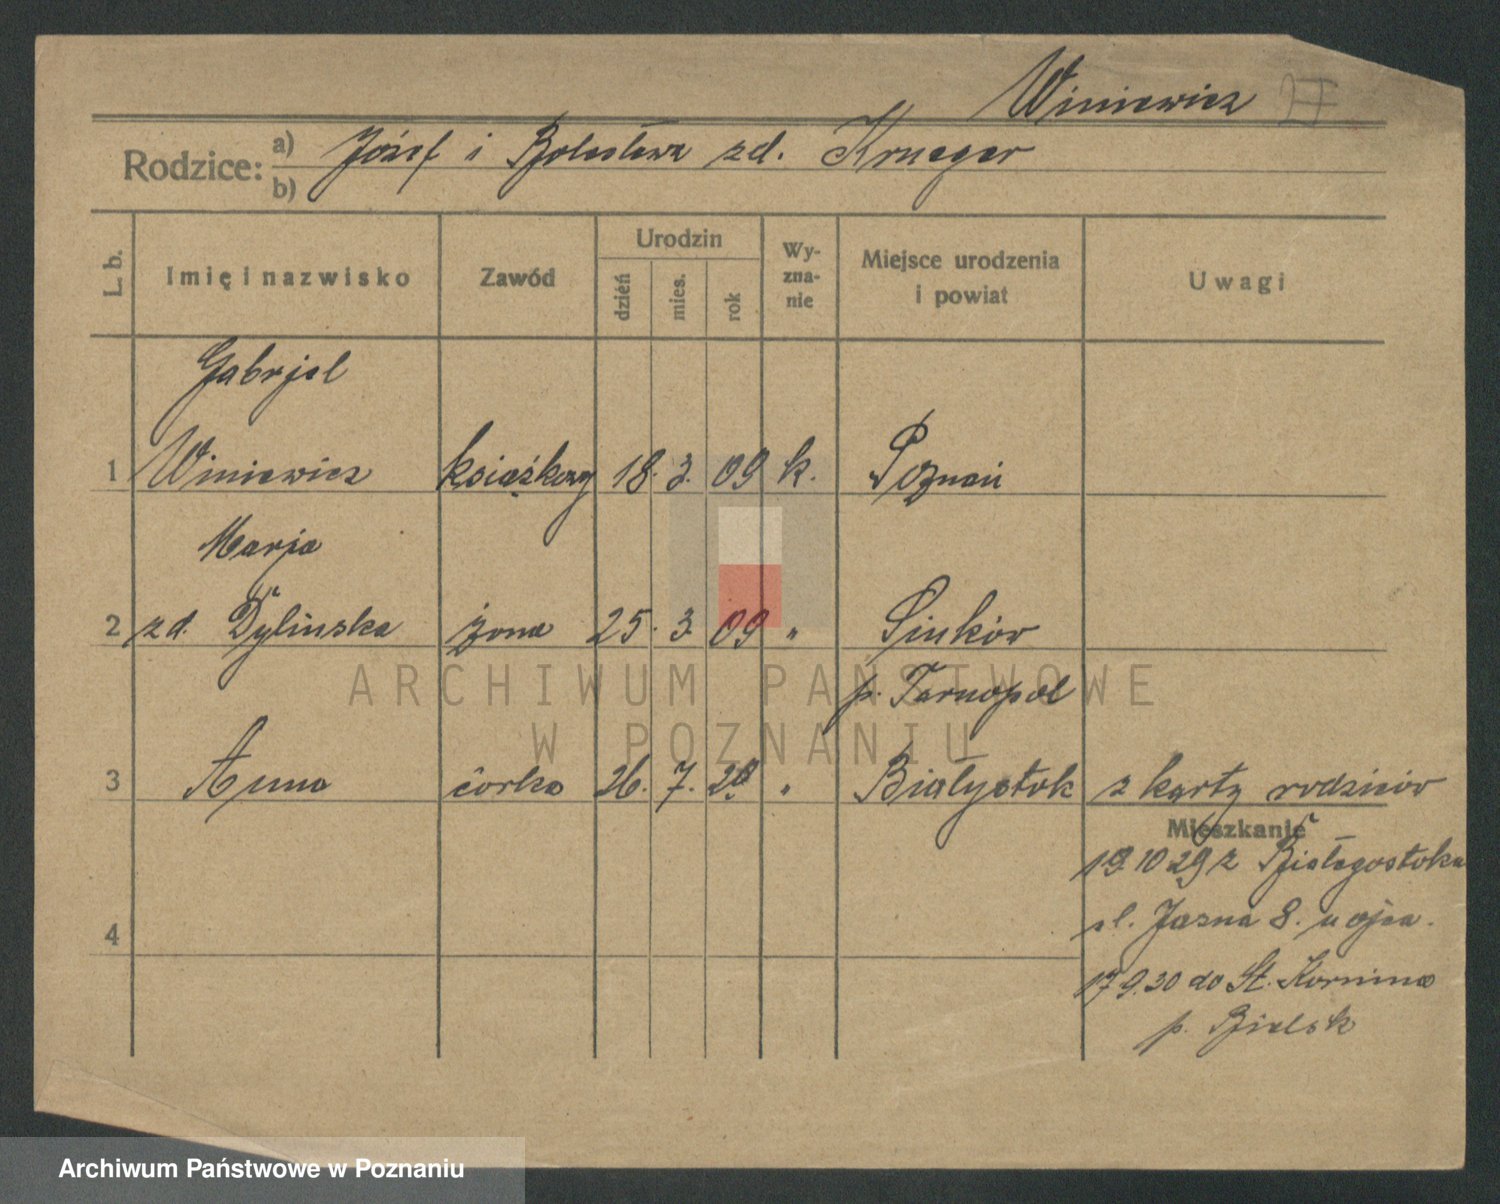 Winiewicz
Rodzice: a) Józef i Bolesława zd. Krueger
b)
L. b. Imię i nazwisko Zawód Urodzin dzień mies. rok Wy-zna-nie Miejsce urodzenia i powiat Uwagi
Gabrjel
1 Winiewicz książkowy 18. 3. 09 k. Poznań
Marja
2 zd. Dylińska żona 25. 3. 09 " Sinków
p. Tarnopol
3 Anna córka 26. 7. " Białystok z karty rodziców
Mieszkanie
19.10 29 z Białegostoku
ul. Jasna 8. u ojca.
4
17 9.30 do St. Kornina
p. Bielsk
ARCHIWUM PAŃSTWOWE
W POZNANIU
Archiwum Państwowe w Poznaniu